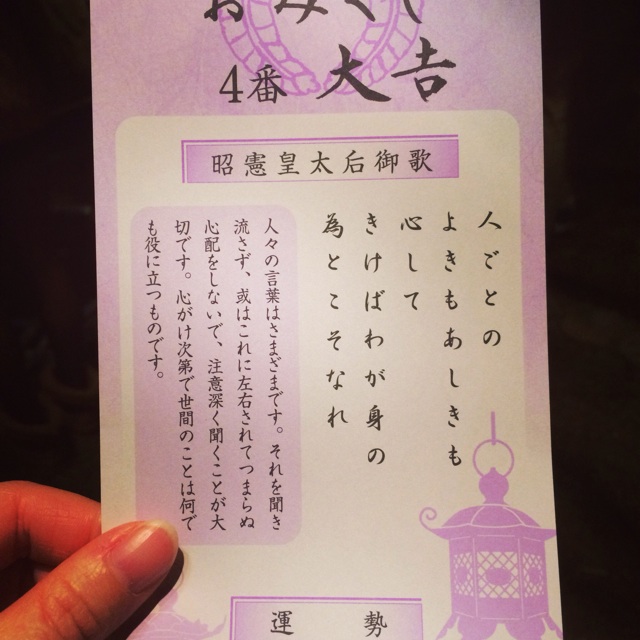 おみくじ
4番 大吉
昭憲皇太后御歌
人ごとの
よきもあしきも
心して
きけばわが身の
為とこそなれ
人々の言葉はさまざまです。それを聞き
流さず、或はこれに左右されてつまらぬ
心配をしないで、注意深く聞くことが大
切です。心がけ次第で世間のことは何で
も役に立つものです。
運勢